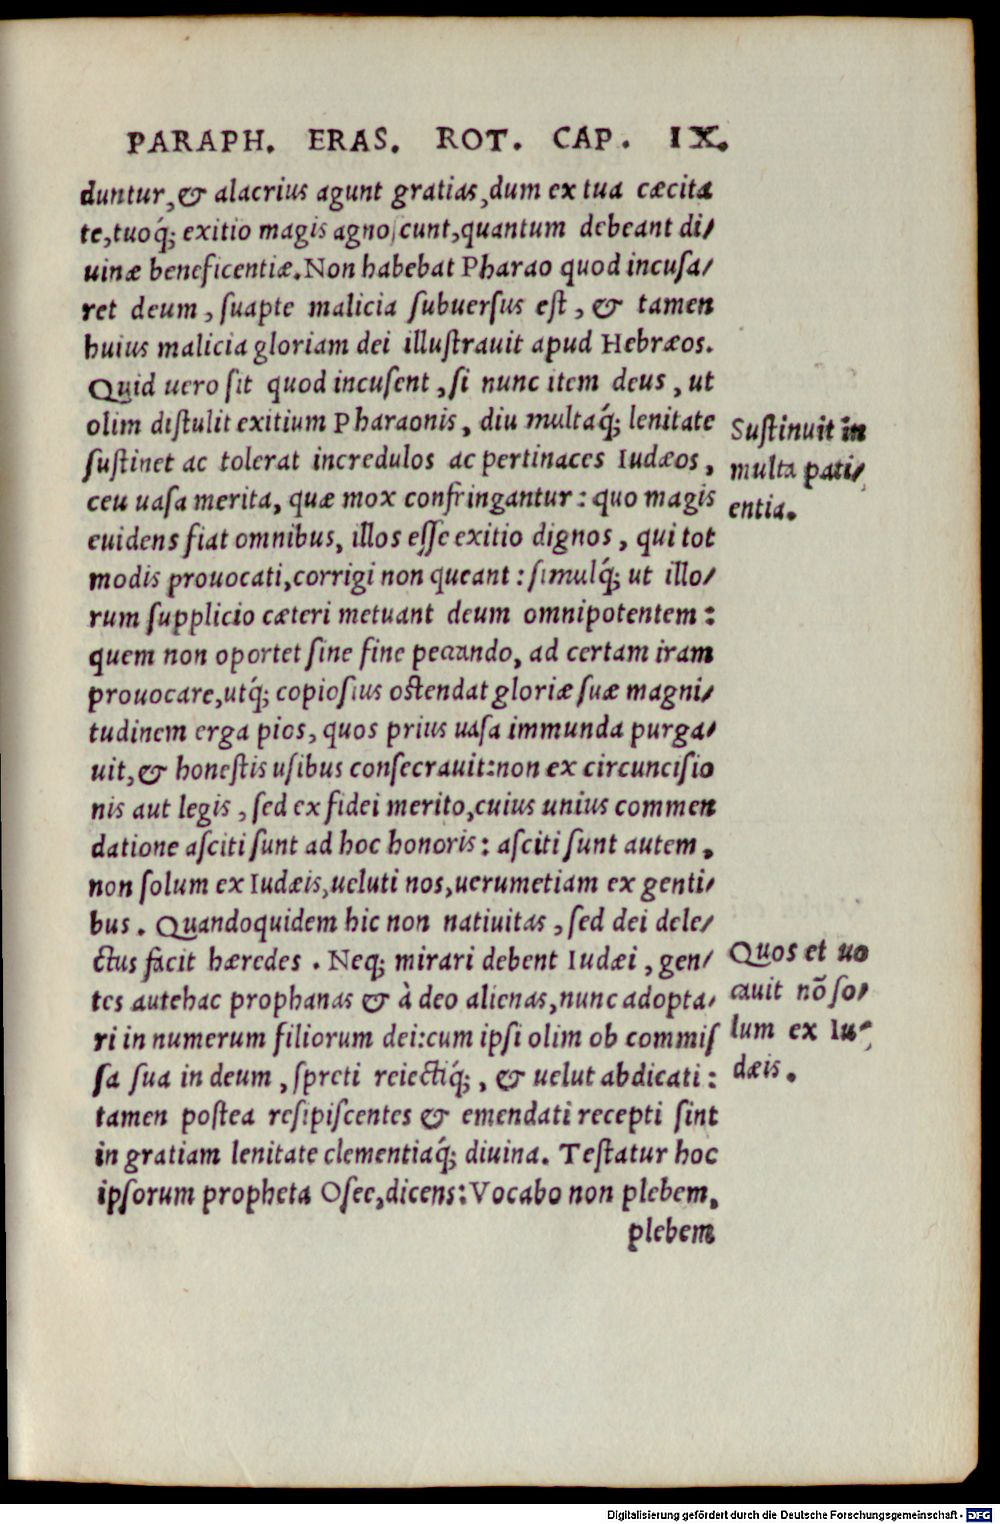 PARAPH. ERAS. ROT. CAP. IX.
duntur, & alacrius agunt gratias, dum ex tua cæcita
te, tuoq́; exitio magis agnoſcunt, quantum debeant di/
uinæ beneficentiæ. Non habebat Pharao quod incuſa/
ret deum, ſuapte malicia ſubuerſus eſt, & tamen
huius malicia gloriam dei illuſtrauit apud Hebræos.
Quid uero ſit quod incuſent, ſi nunc item deus, ut
olim diſtulit exitium Pharaonis, diu multaq́; lenitate
ſuſtinet ac tolerat incredulos ac pertinaces Iudæos,
ceu uaſa merita, quæ mox confringantur: quo magis
euidens fiat omnibus, illos eſſe exitio dignos, qui tot
modis prouocati, corrigi non queant: ſimulq́; ut illo/
rum ſupplicio cæteri metuant deum omnipotentem:
quem non oportet ſine fine peccando, ad certam iram
prouocare, utq́; copioſius oſtendat gloriæ ſuæ magni/
tudinem erga pios, quos prius uaſa immunda purga/
uit, & honeſtis uſibus conſecrauit: non ex circunciſio
nis aut legis, ſed ex fidei merito, cuius unius commen
datione aſciti ſunt ad hoc honoris: aſciti ſunt autem,
non ſolum ex Iudæis, ueluti nos, uerumetiam ex genti/
bus. Quandoquidem hic non natiuitas, ſed dei dele/
ctus facit hæredes. Neq; mirari debent Iudæi, gen/
tes antehac prophanas & à deo alienas, nunc adopta/
ri in numerum filiorum dei: cum ipſi olim ob commiſ
ſa ſua in deum, ſpreti reiectiq́;, & uelut abdicati:
tamen poſtea reſipiſcentes & emendati recepti ſint
in gratiam lenitate clementiaq́; diuina. Teſtatur hoc
ipſorum propheta Oſee, dicens: Vocabo non plebem,
plebem
Suſtinuit in
multa pati/
entia.
Quos et uo
cauit nõ ſo/
lum ex Iu/
dæis.
Digitalisierung gefördert durch die Deutsche Forschungsgemeinschaft - DFG